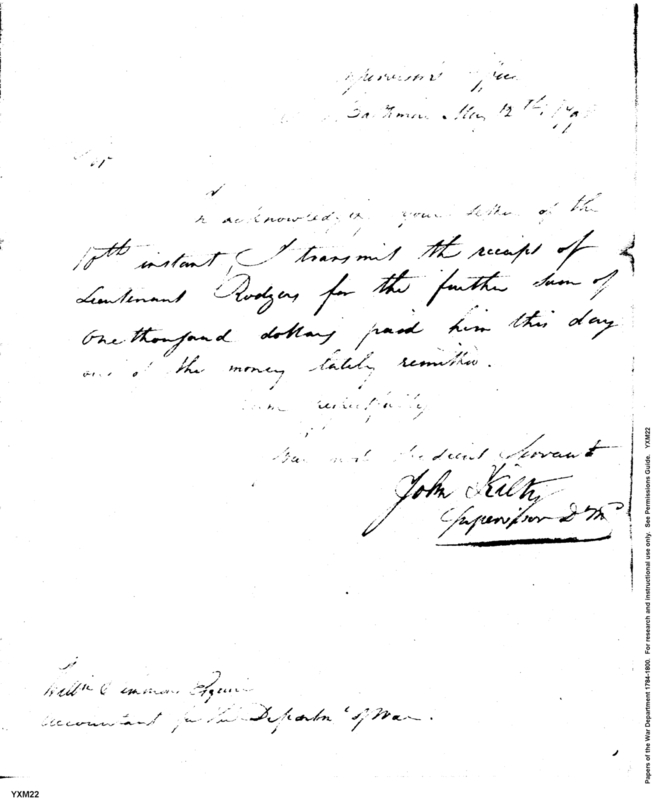 Supervisor's Office
Baltimore May 12th, 179
Sir
In acknowledging your letter of the
10th instant, I transmit the receipt of
Lieutenant Rodgers for the further sum of
One thousand dollars paid him this day
out of the money lately remitted.
I am respectfully
Sir
Your most Obedient Servant
John Kilty
Supervisor D Md
Willm Simmons Esquire
Accountant for the Departmt of War.
YXM22
Papers of the War Department 1784-1800. For research and instructional use only. See Permissions Guide. YXM22